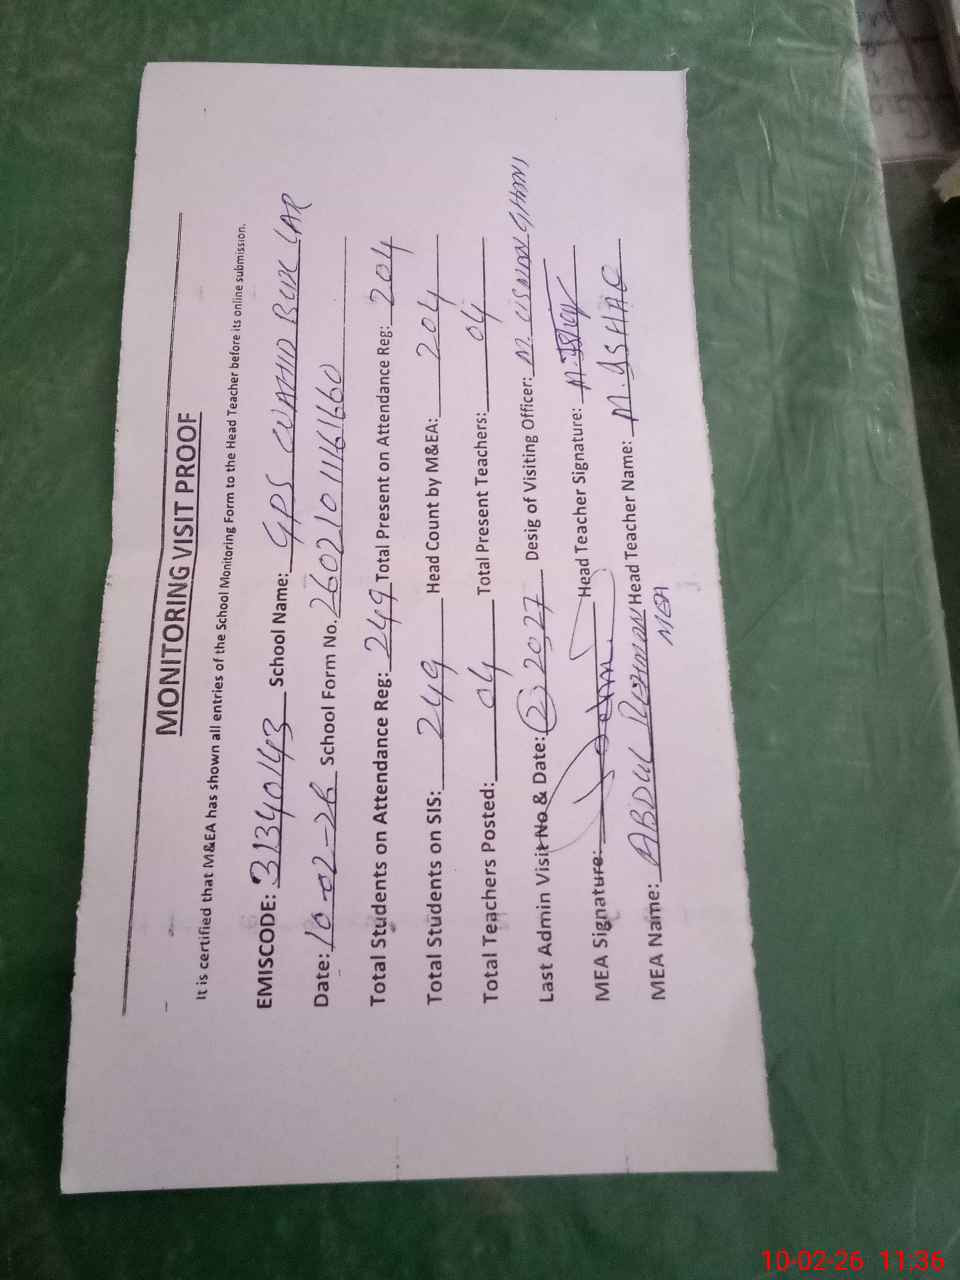 MONITORING VISIT PROOF
It is certified that M&EA has shown all entries of the School Monitoring Form to the Head Teacher before its online submission.
EMISCODE: 31340143 School Name: GPS WAHID BUX LAR
Date: 10-02-26 School Form No. 26021011161660
Total Students on Attendance Reg: 249 Total Present on Attendance Reg: 204
Total Students on SIS: 249 Head Count by M&EA: 204
Total Teachers Posted: 04 Total Present Teachers: 04
Last Admin Visit No & Date: 2027 Desig of Visiting Officer: M. USMAN GHANI
MEA Signature: Head Teacher Signature:
MEA Name: ABDUL REHMAN Head Teacher Name: M. ISHAQ
MEA
10-02-26 11:36